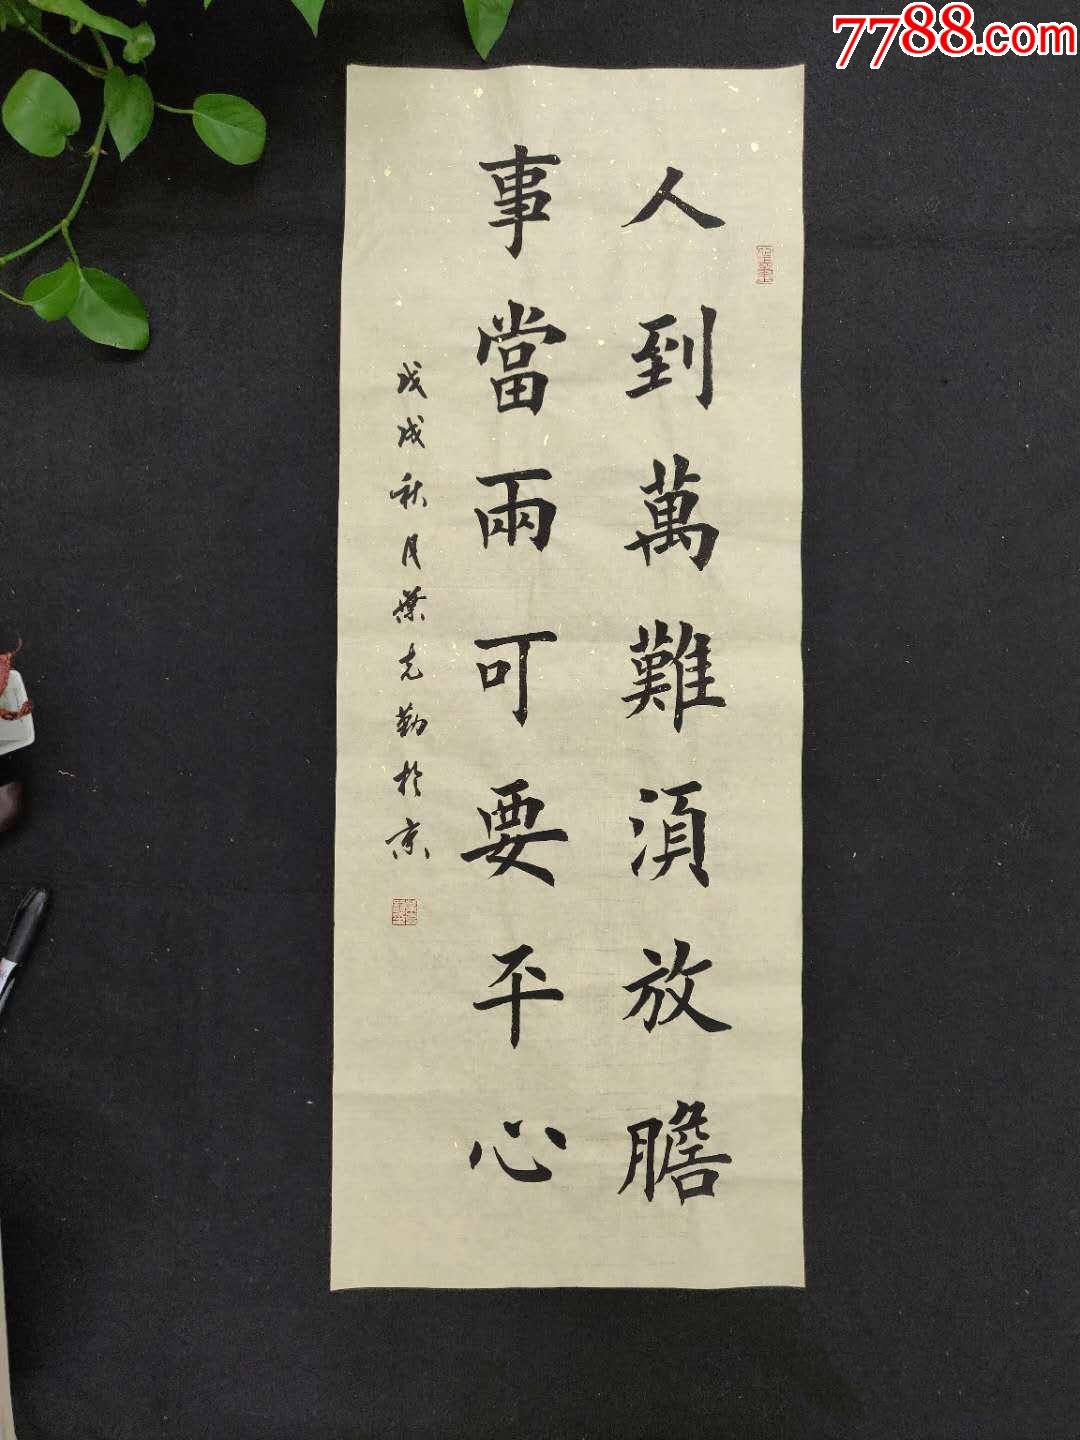 7788.com
人到萬難須放膽
事當兩可要平心
戊戌秋月葉克勤於京